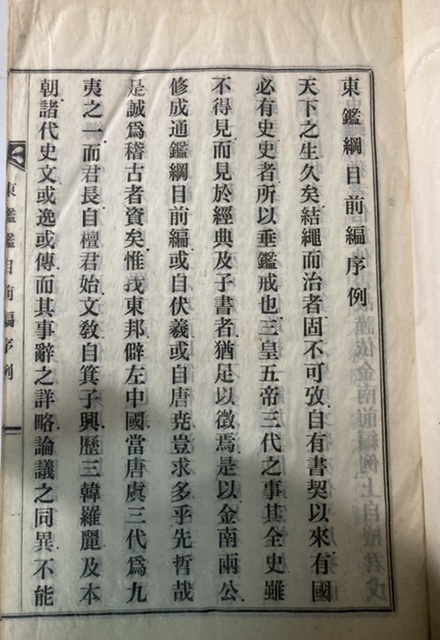 東鑑綱目前編序例
天下之生久矣結繩而治者固不可攷自有書契以來有國
必有史史者所以垂鑑戒也三皇五帝三代之事其全史雖
不得見而見於經典及子書者猶足以徵焉是以金南兩公
修成通鑑綱目前編或自伏羲或自唐堯豈求多乎先哲哉
是誠爲稽古者資矣惟我東邦僻左中國當唐虞三代爲九
夷之一而君長自檀君始文敎自箕子興歷三韓羅麗及本
朝諸代史文或逸或傳而其事辭之詳略論議之同異不能
東鑑綱目前編 序例 一